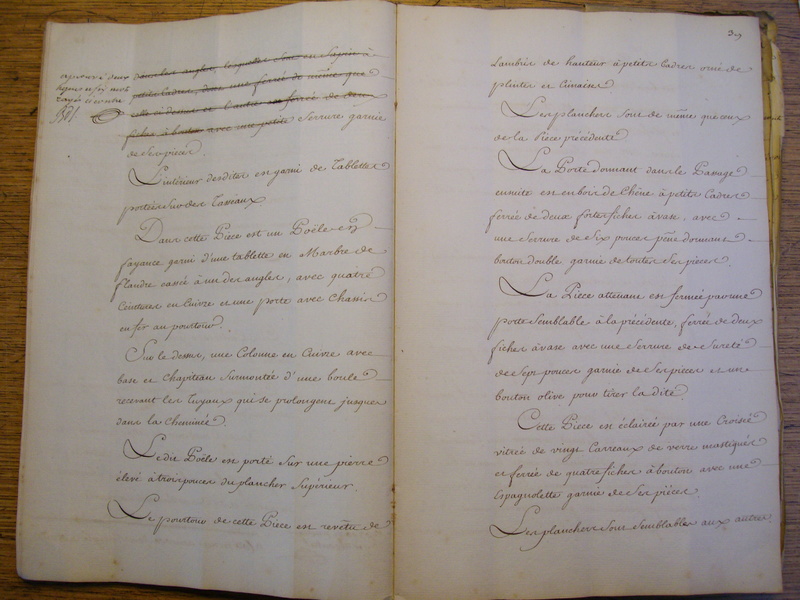 approuvé deux
lignes et six mots
rayés ci contre
dans les angles, lesquelles sont en Sapin à
petits cadres, dont une ferrée de même que
celle ci dessus et l'autre en ferrée de deux
fiches à bouton avec une petite Serrure garnie
de ses pieces.
L'intérieur desdites est garni de Tablettes
portées sur des Tasseaux
Dans cette Piece est un Poële en
fayance garni d'une tablette en Marbre de
flandre cassée à un des angles, avec quatre
Ceintures en Cuivre et une porte avec chassis
en fer au pourtour.
Sur le dessus, une Colonne en Cuivre avec
base et chapiteau surmontée d'une boule
recevant les Tuyaux qui se prolongent jusques
dans la Cheminée.
Ledit Poële est porté sur une pierre
élevé à trois pouces du plancher Supérieur.
Le pourtour de cette Piece est revêtu de
39
Lambris de hauteur à petits Cadres orné de
plintes et Cimaise
Les planchers sont de même que ceux
de la Piece précédente
La Porte donnant dans le Passage
ensuite est en bois de Chêne à petits Cadres
ferrée de deux fortes fiches à vase, avec
une Serrure de Six pouces pêne dormant
bouton double garnie de toutes ses pieces
La Piece attenant est fermée par une
porte Semblable à la précédente, ferrée de deux
fiches à vase avec une Serrure de Sureté
de Sept pouces garnie de ses pieces et un
bouton olive pour tirer la dite
Cette Piece est éclairée par une Croisée
vitrée de vingt Carreaux de verre mastiqués
et ferrée de quatre fiches à bouton avec une
Espagnolette garnie de ses pieces
Les planchers sont semblables aux autres